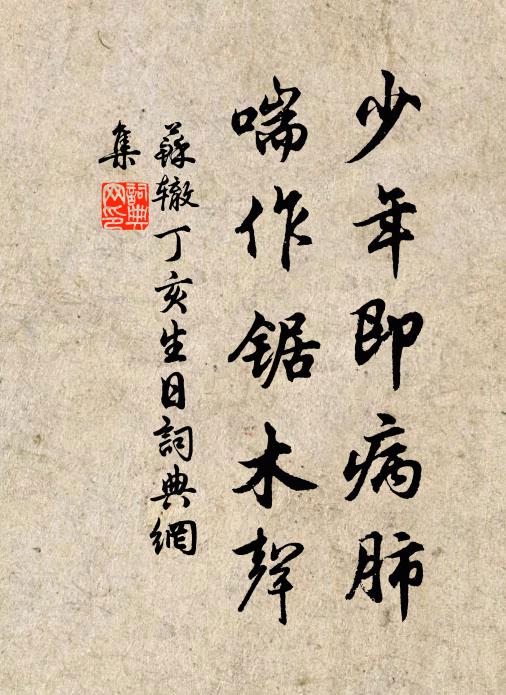 少年即病肺
喘作锯木聲
蘇辙丁亥生日詞典網
集
詞典
网印